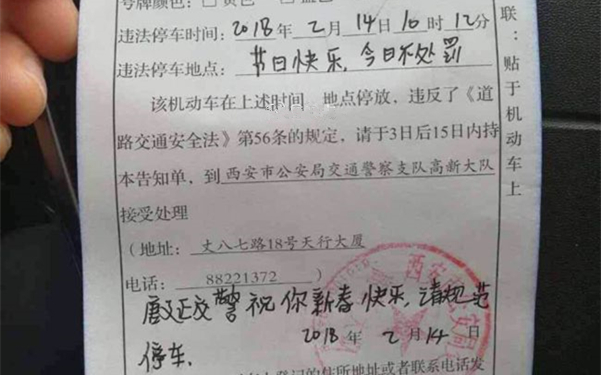 号牌颜色：□ 黄色 □ 蓝色
违法停车时间：2018年2月14日10时12分
违法停车地点：节日快乐，今日不处罚
该机动车在上述时间 地点停放，违反了《道
路交通安全法》第56条的规定，请于3日后15日内持
本告知单，到西安市公安局交通警察支队高新大队
接受处理
（地址：丈八七路18号天行大厦
电话：88221372）
交警祝你新春快乐，请规范
停车．
2018年2月14日
联：贴于机动车上
西安市公安局